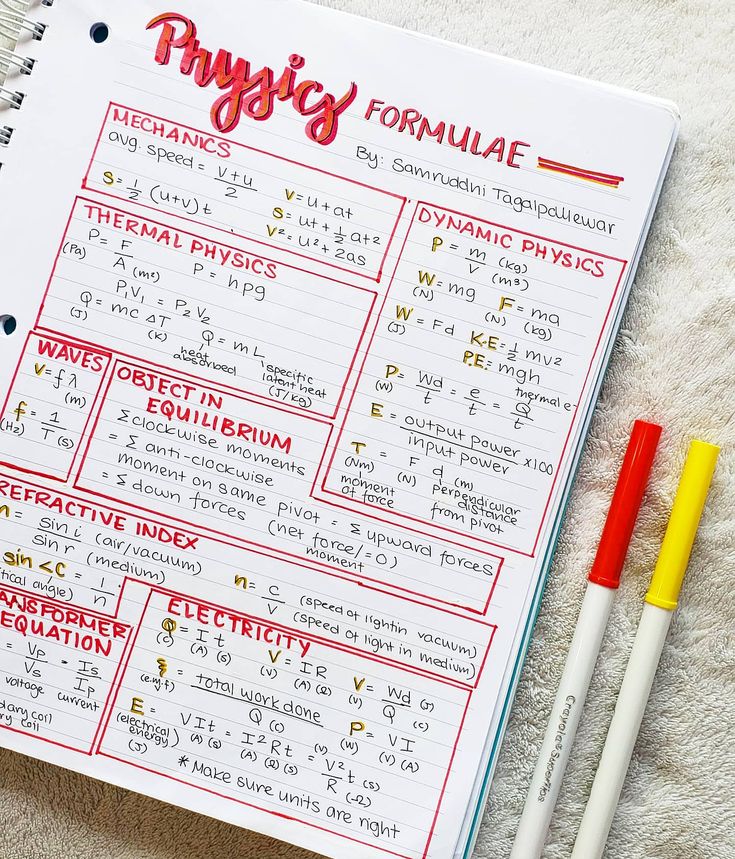 Physics FORMULAE
By: Samruddhi Tagalpallewar
MECHANICS
avg. speed = v+u / 2
S = 1/2 (u+v) t
v = u + at
S = ut + 1/2 at²
v² = u² + 2as
THERMAL PHYSICS
P = F / A (m²)
(Pa)
P = hρg
P₁V₁ = P₂V₂
Q = mc ΔT
(J) (K)
Q = mL
heat absorbed
specific latent heat (J/kg)
DYNAMIC PHYSICS
P = m (kg) / V (m³)
W = mg
(N)
F = ma
(N) (kg)
W = Fd
(J)
K.E = 1/2 mv²
P.E = mgh
P = Wd / t = e / t = Q / t
(W)
thermal e
E = output power / input power × 100
T = F d (m)
(Nm)
moment of force
perpendicular distance from pivot
WAVES
v = f λ
(m)
f = 1 / T (s)
(Hz)
OBJECT IN
EQUILIBRIUM
Σ clockwise moments
= Σ anti-clockwise
moment on same pivot = Σ upward forces
= Σ down forces (net force/moment = 0)
REFRACTIVE INDEX
n = sin i / sin r (air/vacuum) / (medium)
sin <c = 1 / n
angle)
n = c / v (speed of light in vacuum) / (speed of light in medium)
EQUATION
= Vp / Vs = Is / Ip
voltage current
coil
coil
ELECTRICITY
Q = I t
(C) (A) (s)
V = I R
(V) (A) (Ω)
V = Wd (J) / Q (C)
(V)
ξ = total work done / Q (C)
(e.m.f)
E = VIt = I²Rt = V²t (s) / R (Ω)
(electrical energy) (J)
(V) (A) (s) (A) (Ω) (s) (V)
P = VI
(W) (V) (A)
* Make sure units are right
Crayola® SuperTips